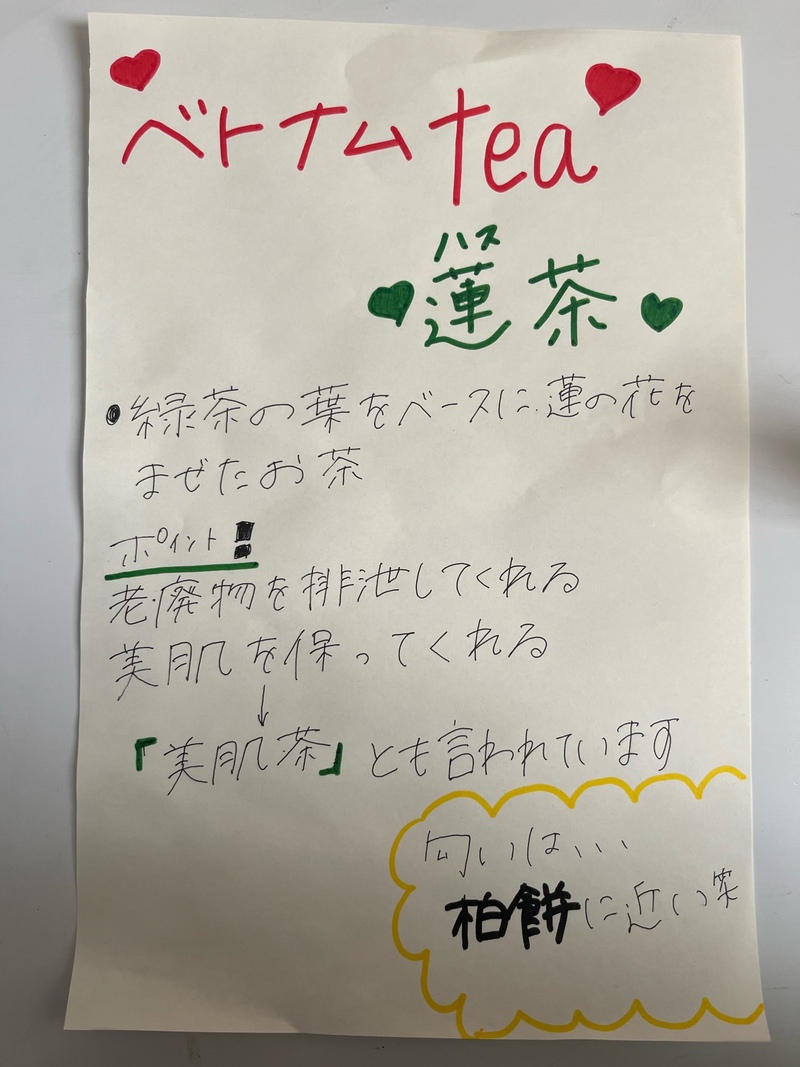 ベトナムtea
ハス
蓮茶
•緑茶の葉をベースに、蓮の花を
まぜたお茶
ポイント!
老廃物を排泄してくれる
美肌を保ってくれる
↓
「美肌茶」とも言われています
匂いは、、、
柏餅に近い笑